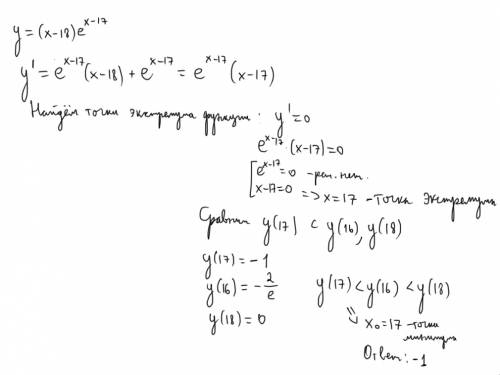 y = (x-18)e^{x-17}
y' = e^{x-17}(x-18) + e^{x-17} = e^{x-17}(x-17)
Найдём точки экстремума функции: y' = 0
e^{x-17}·(x-17)=0
[e^{x-17}=0 - реш. нет.
[x-17=0 => x=17 - точка экстремума
Сравним y(17) с y(16), y(18)
y(17) = -1
y(16) = -2/e y(17) < y(16) < y(18)
y(18) = 0 ⇓
x₀=17 - точка минимума
Ответ: -1